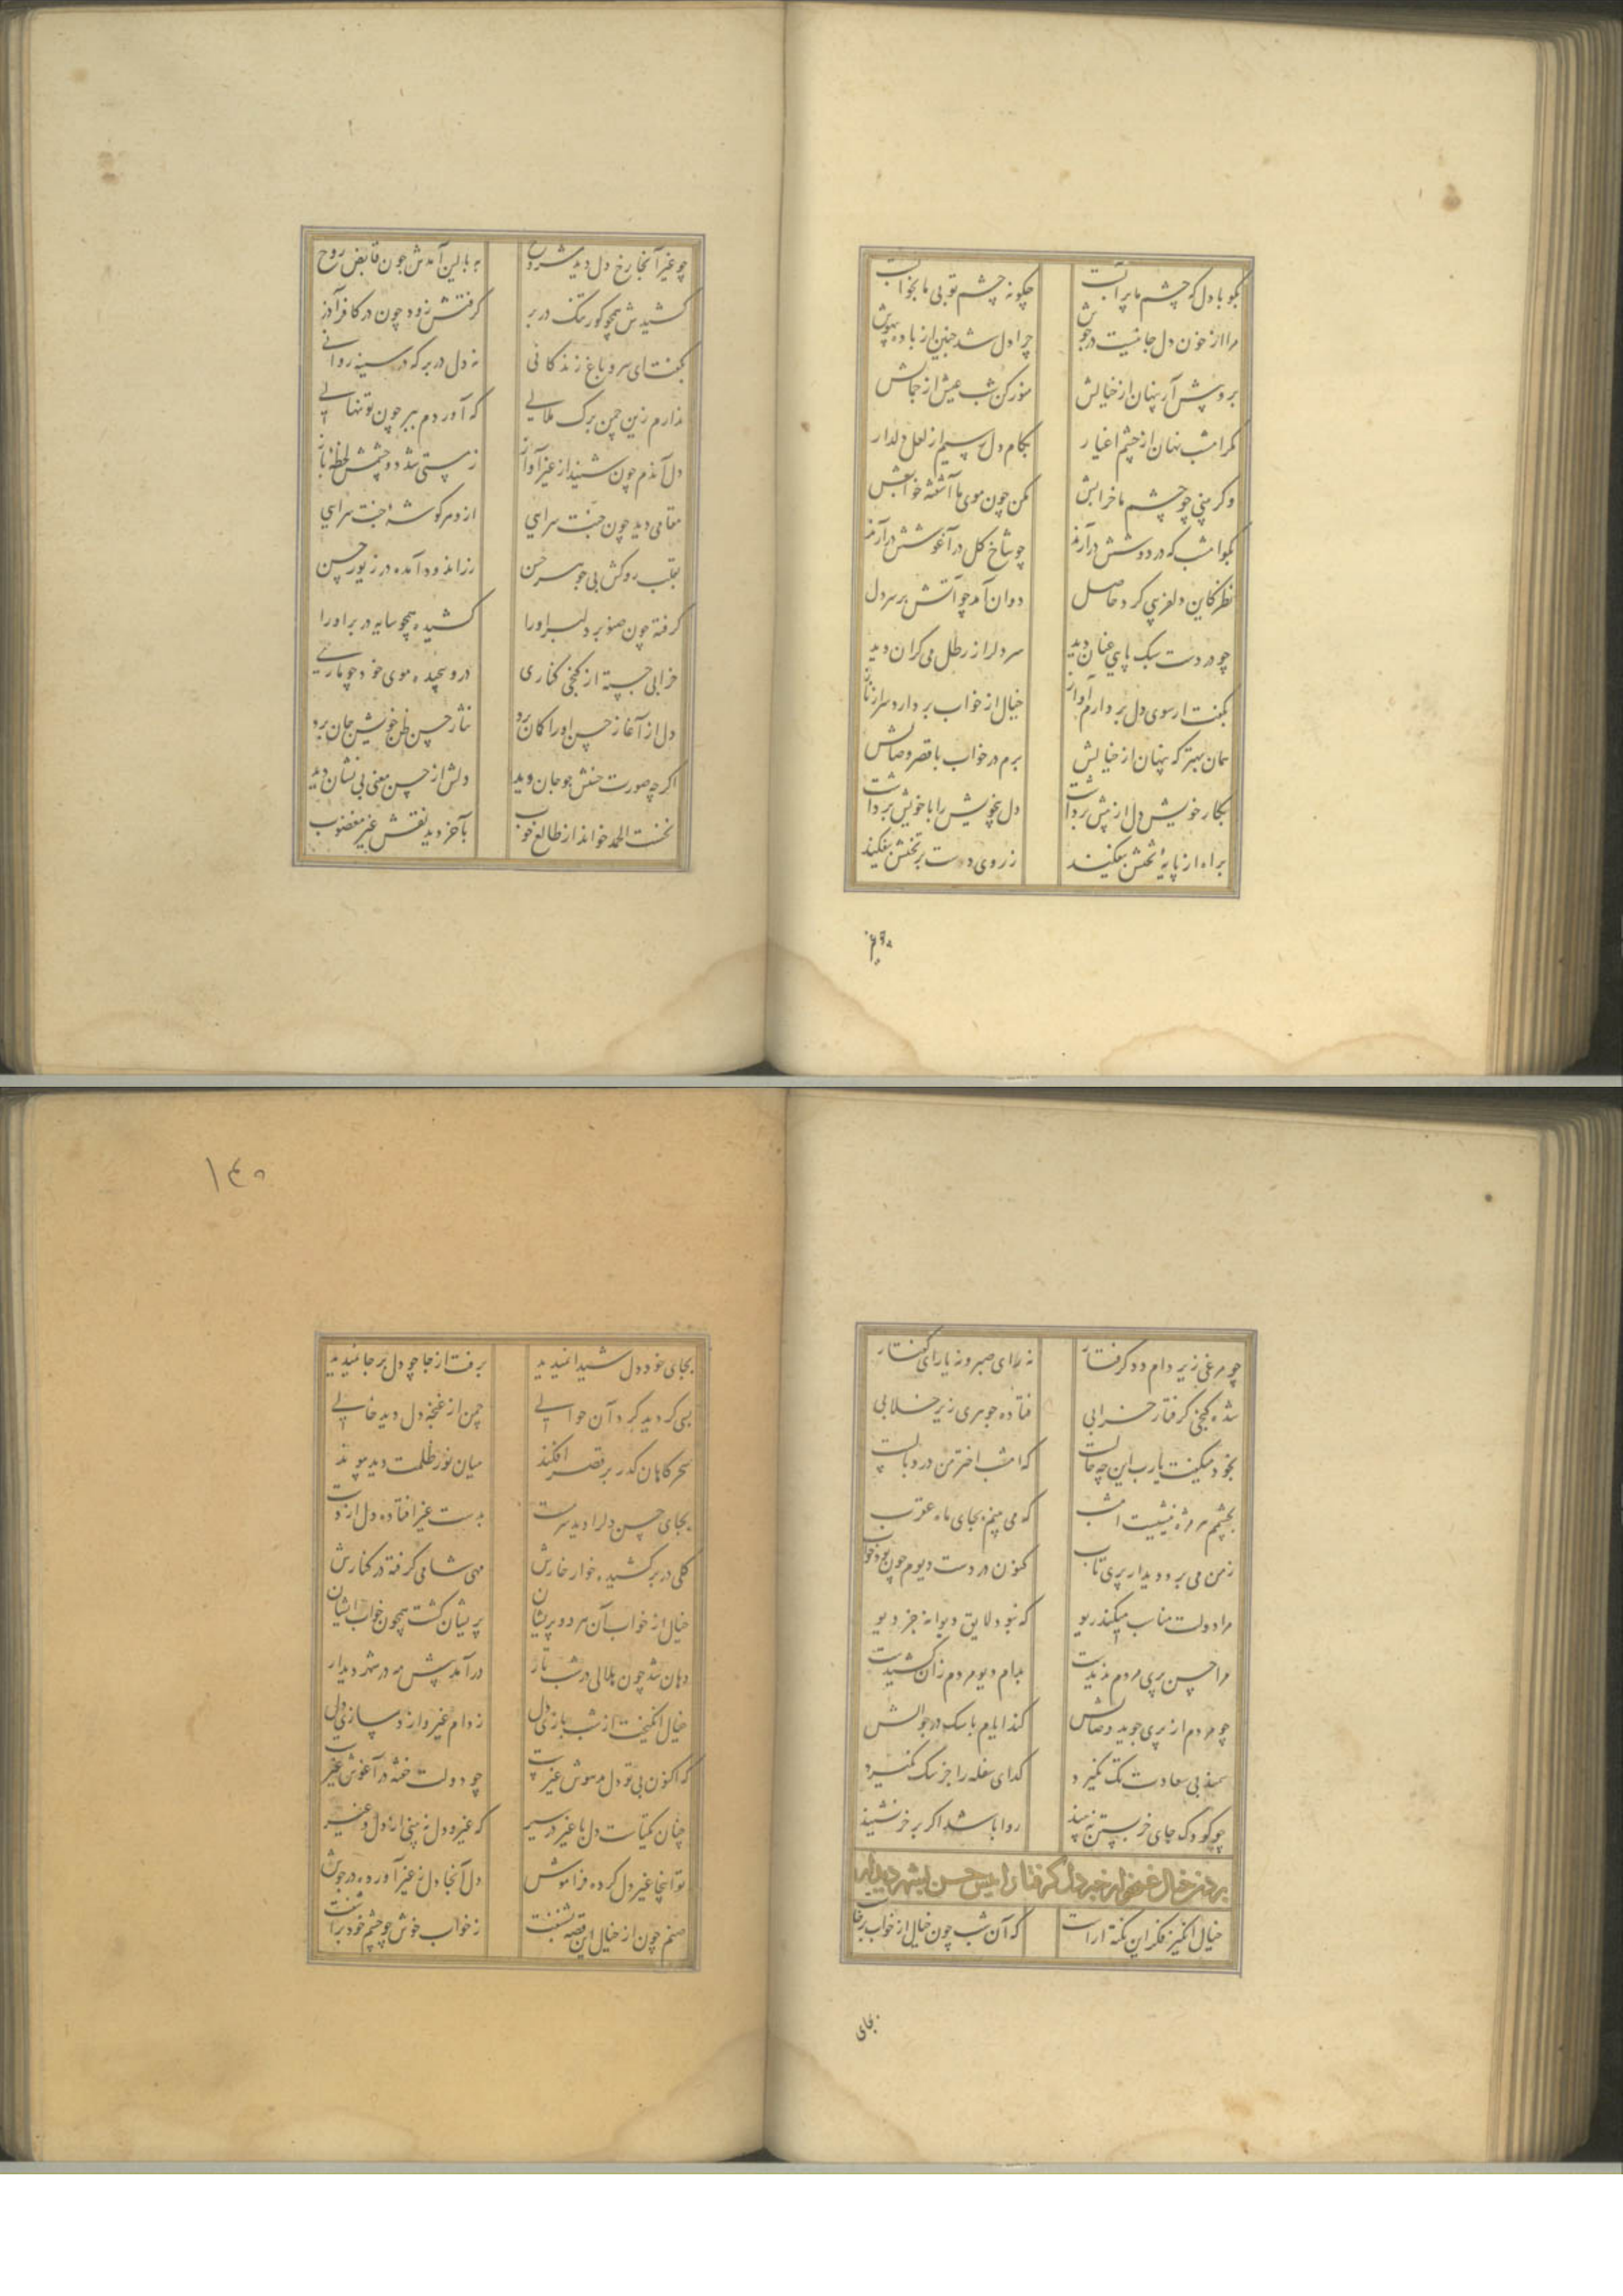 بکو با دل که چشم ما پر آبست چکونه چشم تو بی ما بخوابست
مرا از خون دل جانیست در جوش چرا دل شد چنین از باده بیهوش
بروپیش آر پنهان از خیالش منور کن شب عیش از جمالش
مکر امشب نهان از چشم اغیار بکام دل رسیم از لعل دلدار
وکر بینی چو چشم ما خرابش مکن چون موی ما آشفته خوابش
بکو امشب که در دوشش درآرند چو شاخ کل در آغوشش درآرند
نظر کاین دلفریبی کرد حاصل دوان آمد چو آتش بر سر دل
چو در دست سبک پایی عنان دید سر دل را از رطل می کران دید
بکفت ار سوی دل بردارم آواز خیال از خواب بردارد سر از ناز
همان بهتر که پنهان از خیالش برم در خواب با قصر وصالش
بکار خویش دل از پیش برداشت دل بیخویش را با خویش برداشت
براه از پایهٔ تختش بیفکند ز روی دست بر تختش بیفکند
چو غیر آنجا رخ دل دید مشروح به بالین آمدش چون قابض روح
کشیدش همچو کور تنک در بر کرفتش زود چون در کافر آذر
بکفت ای سرو باغ زندکانی نه دل در بر که در سینه روانی
ندارم زین چمن برک ملالی که آوردم ببر چون تو نهالی
دل آندم چون شنید از غیر آواز ز مستی شد دو چشمش لحظهٔ باز
مقامی دید چون جنت سرایی از و هر کوشهٔ جنت سرایی
بقلب روکش بی جوهر حسن زراندود آمده در زیور حسن
کرفته چون صنوبر دلبر او را کشیده همچو سایه در بر او را
خرابی جسته از کنجی کناری درو پیچیده موی خود چو ماری
دل از آغاز حسن او را کمان برد نثار حسن ظن خویش جان برد
اکر چه صورت حسنش چو جان دید دلش از حسن معنی بی نشان دید
نخست الحمد خواند از طالع خوب بآخر دید نقش غیر مغضوب
چو مرغی زیر دام دد کرفتار نه رای صبر و نه یارای کفتار
شده کنجی کرفتار خرابی فتاده جوهری زیر خلابی
بخود میکفت یارب این چه حالست که امشب اختر من در وبالست
بچشمم هر مژه نیشیست امشب که می بینم بجای ماه عقرب
ز من می برد دیدار پری تاب کنون در دست دیوم چون بود خواب
مرا دولت مناسب میکند ریو که نبود لایق دیوانه جز دیو
مرا حسن پری مردم ندیدست بدام دیو مردم زان کشیدست
چو مردم از پری جوید وصالش کند ایام با سک در جوالش
سمند بی سعادت تک نکیرد کدای سفله را جز سک نکیرد
چو کودک جای خر بستن نه بیند روا باشد اکر بر خر نشیند
بردن خیال غمزه را خبر دل کرفتار را پیش حسن بشهر دیدار
خیال انکیز فکر این نکته آراست که آن شب چون خیال از خواب برخاست
بجای خود دل شیدا نمیدید برفت از جا چو دل بر جا نمیدید
بسی کردید کرد آن حوالی چمن از غنچهٔ دل دید خالی
سحرکاهان کذر بر قصر افکند میان نور ظلمت دید پیوند
بجای حسن دل را دید سرمست بدست غیر افتاده دل از دست
کلی در بر کشیده خوار خارش مهی شامی کرفته در کنارش
خیال از خواب آن هر دو پریشان پریشان کشت همچون خواب ایشان
دمان شد چون هلالی در شب تار درآمد پیش مه در شهر دیدار
خیال انکیخت از شب بازی دل ز دام غیر و از دمسازی دل
که اکنون بی تو دل مدهوش غیرست چو دولت خفته در آغوش غیرست
چنان یکتاست دل با غیر در سیر که غیر و دل نه بینی از دل و غیر
تو اینجا غیر دل کرده فراموش دل آنجا دل ز غیر آورده در جوش
صنم چون از خیال این قصه بشنفت ز خواب خوش چو چشم خود برآشفت
بجای
۱۴۵